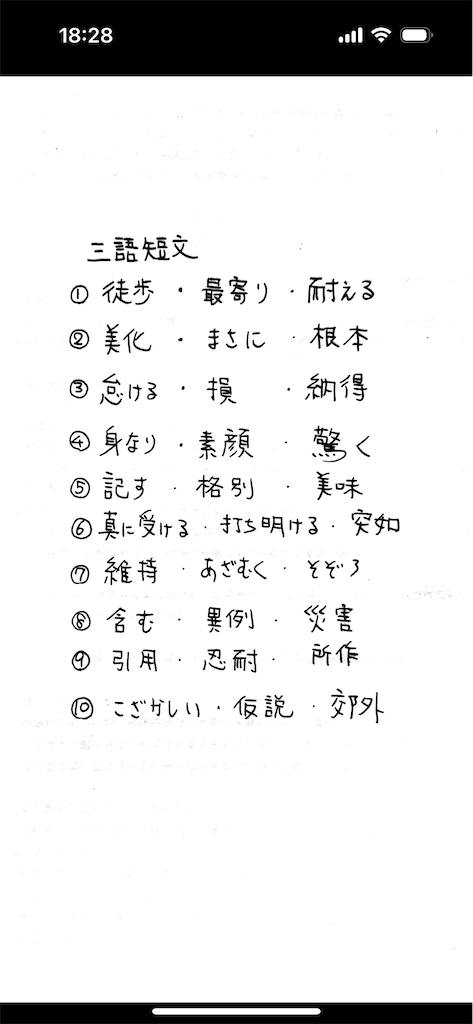 18:28
三語短文
① 徒歩 ・ 最寄り ・ 耐える
② 美化 ・ まさに ・ 根本
③ 怠ける ・ 損 ・ 納得
④ 身なり ・ 素顔 ・ 驚く
⑤ 記す ・ 格別 ・ 美味
⑥ 真に受ける ・ 打ち明ける ・ 突如
⑦ 維持 ・ あざむく ・ そぞろ
⑧ 含む ・ 異例 ・ 災害
⑨ 引用 ・ 忍耐 ・ 所作
⑩ こざかしい ・ 仮説 ・ 郊外